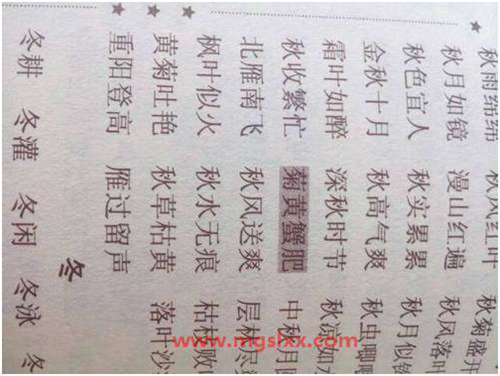 秋雨绵绵 秋风红叶 秋菊盛开
秋月如镜 漫山红遍 秋风落叶
秋色宜人 秋实累累 秋月似
金秋十月 秋高气爽 秋虫唧唧
霜叶如醉 深秋时节 秋凉如水
秋收繁忙 菊黄蟹肥 中秋月圆
北雁南飞 秋风送爽 层林尽
枫叶似火 秋水无痕 枯枝败
黄菊吐艳 秋草枯黄 落叶沙
重阳登高 雁过留声
冬
冬耕 冬灌 冬闲 冬泳 冬
www.mgslxx.com